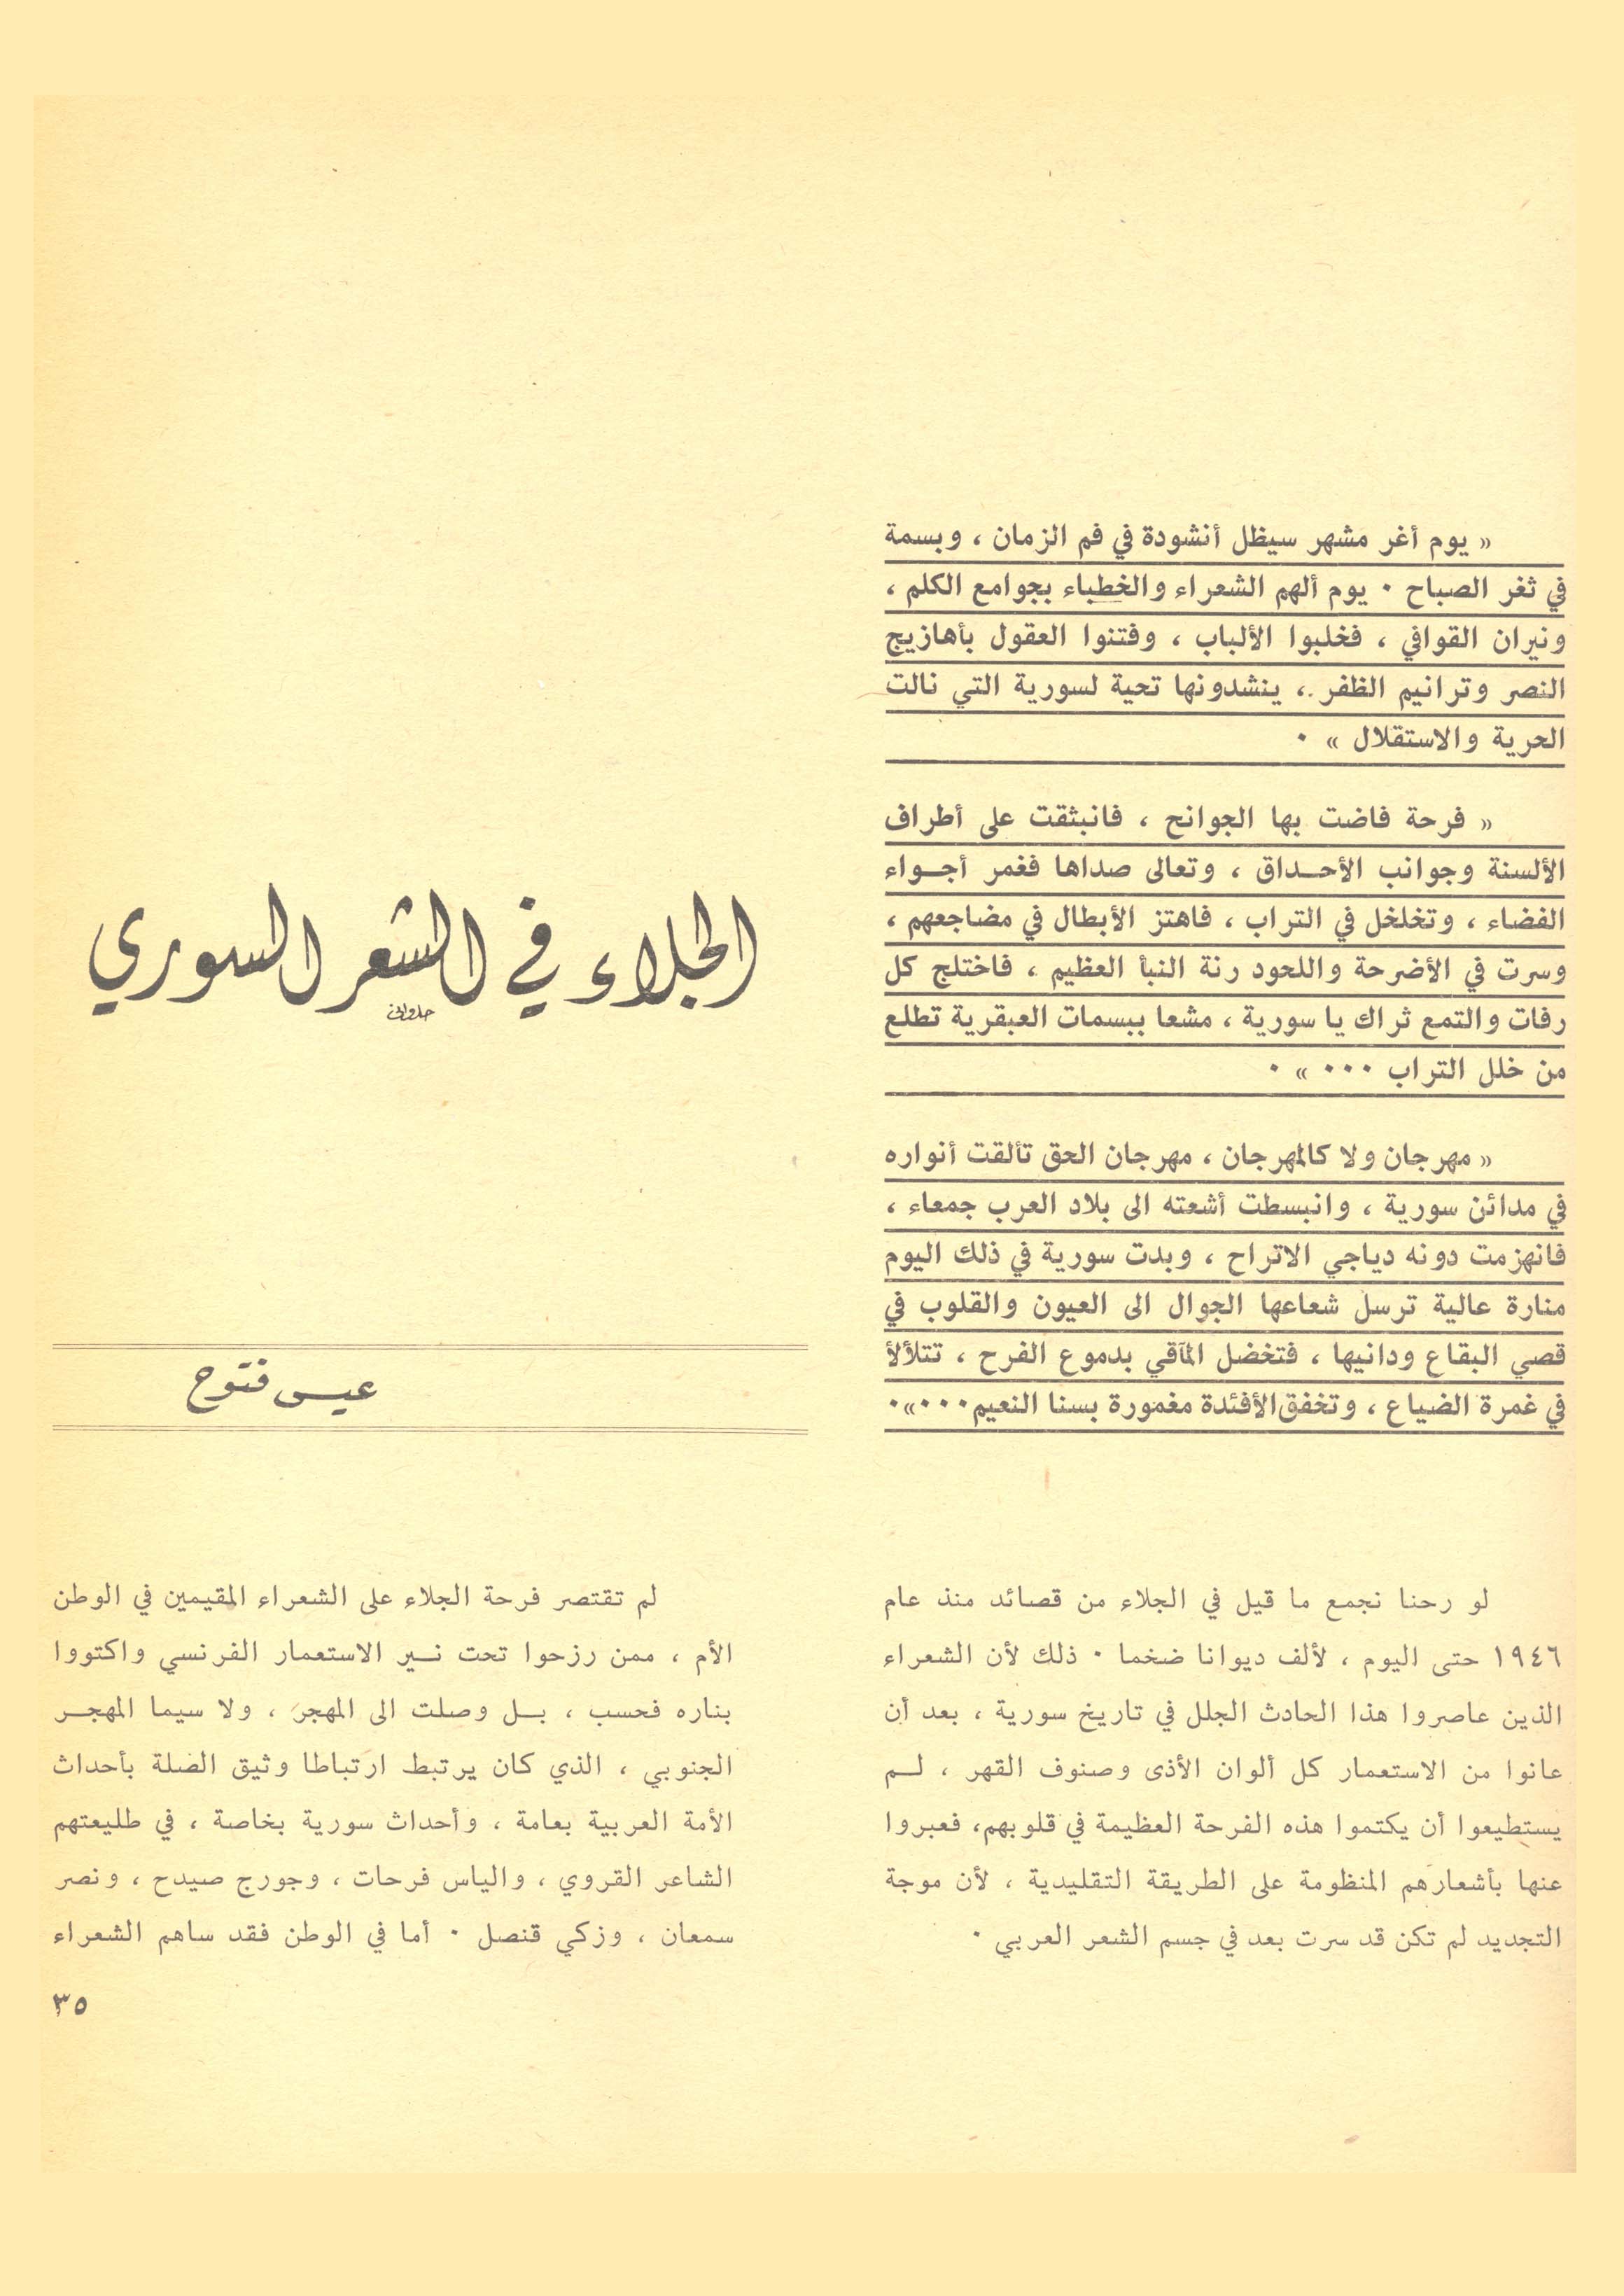 « يوم أغر مشهر سيظل أنشودة في فم الزمان ، وبسمة
في ثغر الصباح ٠ يوم ألهم الشعراء والخطباء بجوامع الكلم ،
ونيران القوافي ، فخلبوا الألباب ، وفتنوا العقول بأهازيج
النصر وترانيم الظفر ، ينشدونها تحية لسورية التي نالت
الحرية والاستقلال » ٠
« فرحة فاضت بها الجوانح ، فانبثقت على أطراف
الألسنة وجوانب الأحـداق ، وتعالى صداها فغمر أجـواء
الفضاء ، وتخلخل في التراب ، فاهتز الأبطال في مضاجعهم ،
وسرت في الأضرحة واللحود رنة النبأ العظيم ، فاختلج كل
رفات والتمع ثراك يا سورية ، مشعا ببسمات العبقرية تطلع
من خلل التراب ٠٠٠ » ٠
« مهرجان ولا كالمهرجان ، مهرجان الحق تألقت أنواره
في مدائن سورية ، وانبسطت أشعته الى بلاد العرب جمعاء ،
فانهزمت دونه دياجي الاتراح ، وبدت سورية في ذلك اليوم
منارة عالية ترسل شعاعها الجوال الى العيون والقلوب في
قصي البقاع ودانيها ، فتخضل المآقي بدموع الفرح ، تتلألأ
في غمرة الضياع ، وتخفق الأفئدة مغمورة بسنا النعيم ٠٠٠» ٠
الجلاء في الشعر السوري
حلواني
عيسى فتوح
لو رحنا نجمع ما قيل في الجلاء من قصائد منذ عام
١٩٤٦ حتى اليوم ، لألف ديوانا ضخما ٠ ذلك لأن الشعراء
الذين عاصروا هذا الحادث الجلل في تاريخ سورية ، بعد أن
عانوا من الاستعمار كل ألوان الأذى وصنوف القهر ، لـم
يستطيعوا أن يكتموا هذه الفرحة العظيمة في قلوبهم، فعبروا
عنها بأشعارهم المنظومة على الطريقة التقليدية ، لأن موجة
التجديد لم تكن قد سرت بعد في جسم الشعر العربي ٠
لم تقتصر فرحة الجلاء على الشعراء المقيمين في الوطن
الأم ، ممن رزحوا تحت نـير الاستعمار الفرنسي واكتووا
بناره فحسب ، بـل وصلت الى المهجر ، ولا سيما المهجـر
الجنوبي ، الذي كان يرتبط ارتباطا وثيق الصلة بأحداث
الأمة العربية بعامة ، وأحداث سورية بخاصة ، في طليعتهم
الشاعر القروي ، والياس فرحات ، وجورج صيدح ، ونصر
سمعان ، وزكي قنصل ٠ أما في الوطن فقد ساهم الشعراء
٣٥